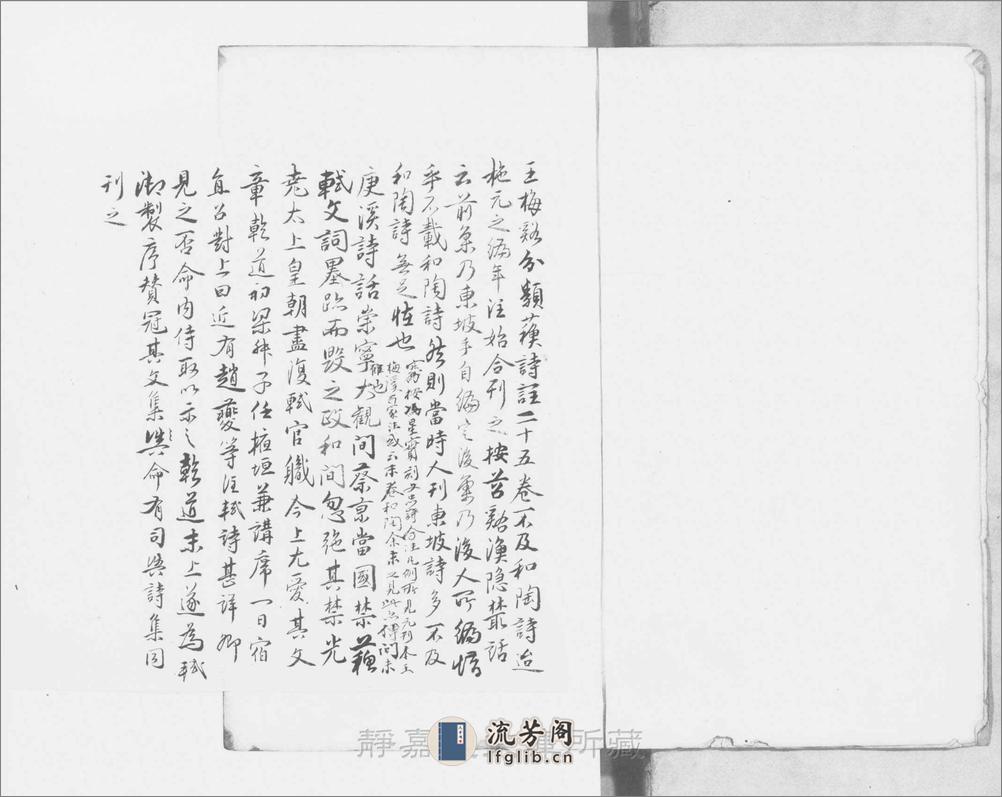 王梅谿分類蘓詩註二十五卷不及和陶詩迨
施元之編年注始合刊之按苕谿漁隐叢話
云前集乃東坡手自編定後集乃後人所編惜
乎不載和陶詩然則當時人刊東坡詩多不及
和陶詩無足怪也
庚溪詩話崇寧大觀间蔡京當國禁蘓
軾文詞墨跡而毀之政和间忽弛其禁
堯太上皇朝盡復軾官職今上尤愛其文
章乾道初梁叔子任掖垣兼講席一日宿
直召對上曰近有趙夔等注軾詩甚详卿
見之否命内侍取以示之乾道末上遂為軾
御製序賛冠其文集命有司與詩集同
刊之
靜嘉 所藏
流芳阁
lfglib.cn